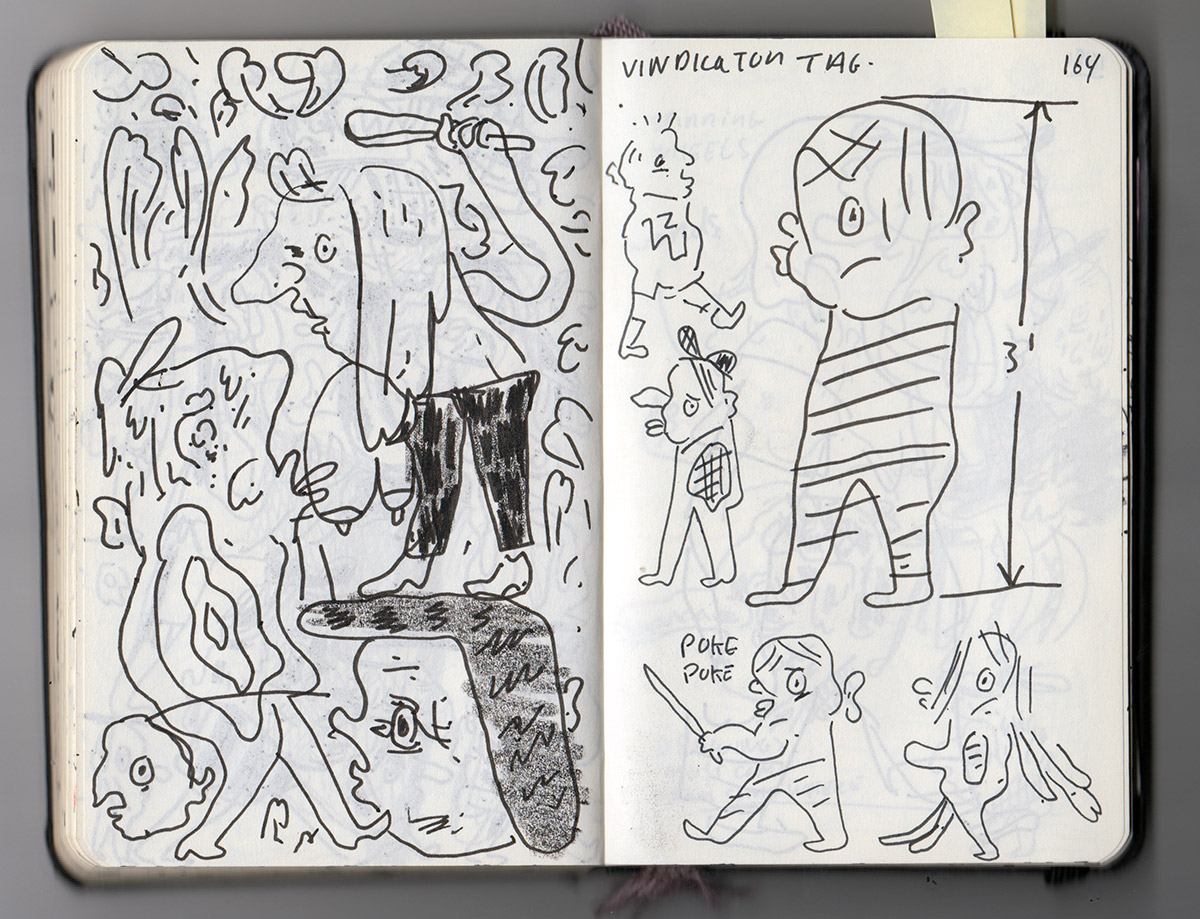 VINDICATON TAG.
164
3'
POKE
POKE